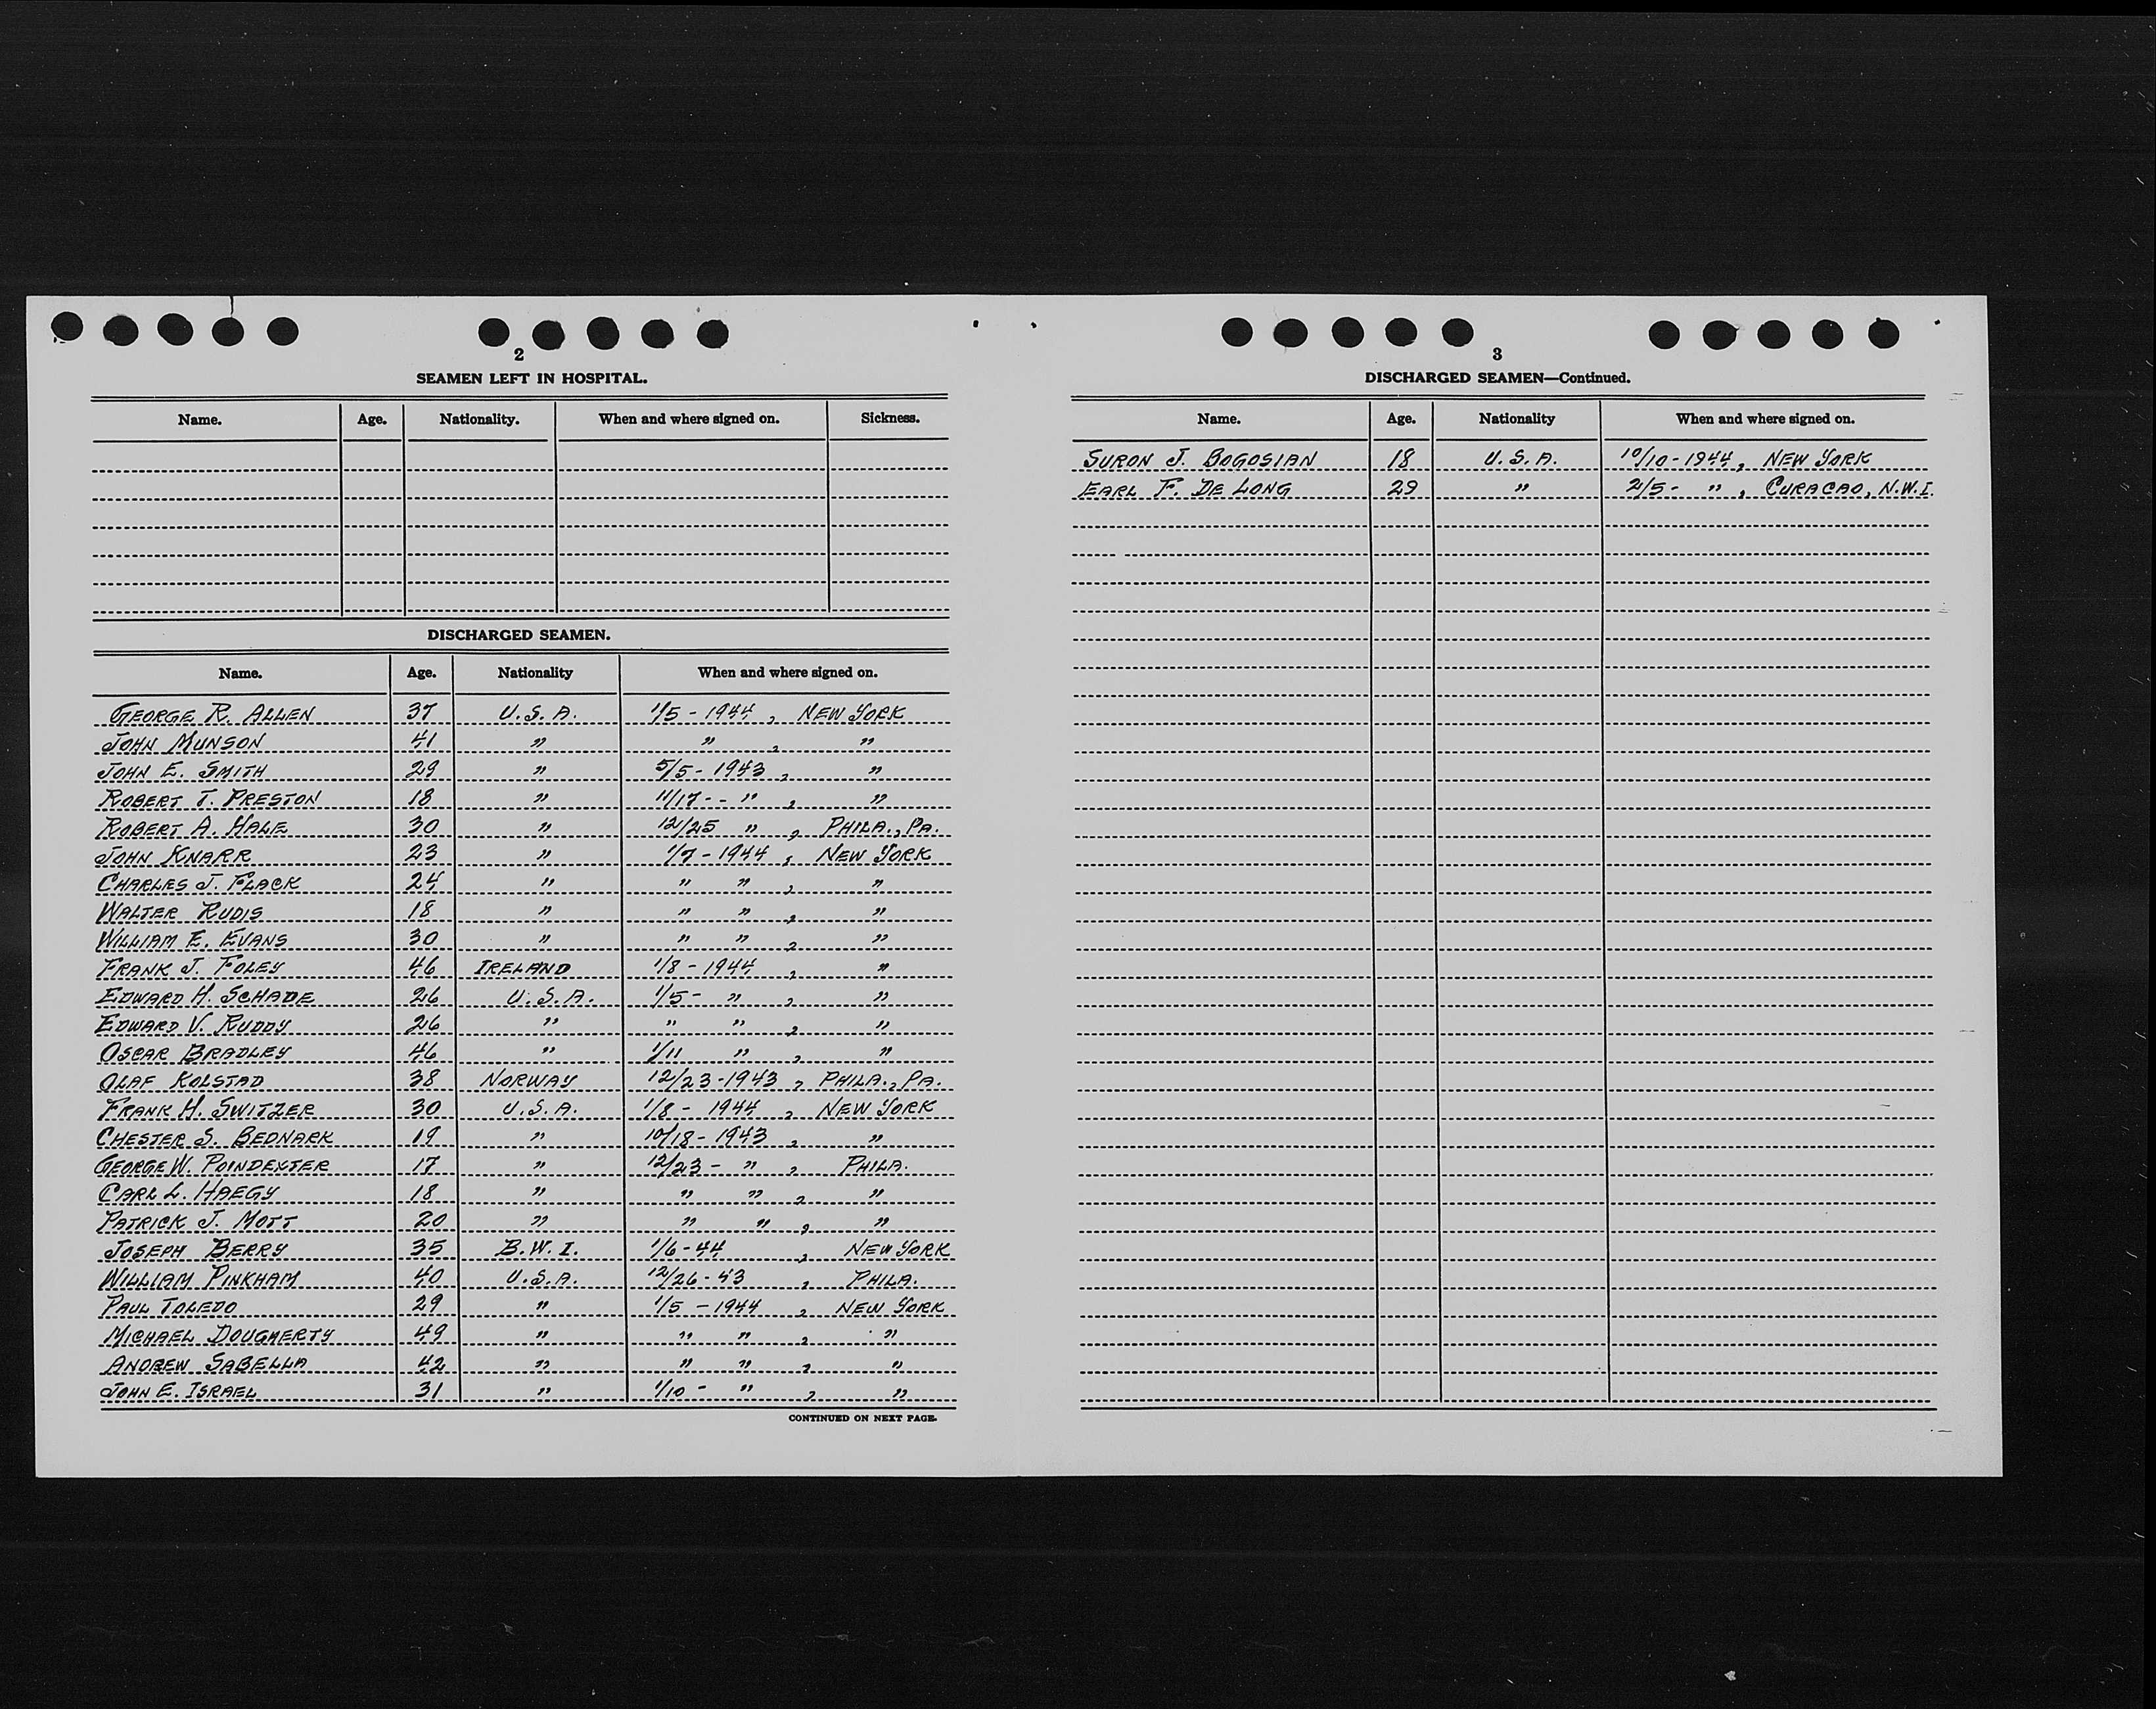 2
SEAMEN LEFT IN HOSPITAL.
Name. Age. Nationality. When and where signed on. Sickness.
DISCHARGED SEAMEN.
Name. Age. Nationality When and where signed on.
GEORGE R. ALLEN 37 U.S.A. 1/5 - 1944, NEW YORK
JOHN MUNSON 41 " " , "
JOHN E. SMITH 29 " 5/5 - 1943, "
ROBERT T. PRESTON 18 " 11/17 - - " , "
ROBERT A. HALE 30 " 12/25 " , PHILA., PA.
JOHN KNARR 23 " 1/7 - 1944, NEW YORK
CHARLES J. FLACK 24 " " " , "
WALTER RUDIS 18 " " " , "
WILLIAM E. EVANS 30 " " " , "
FRANK J. FOLEY 46 IRELAND 1/8 - 1944, "
EDWARD H. SCHADE 26 U.S.A. 1/5 - " , "
EDWARD V. RUDDY 26 " " " , "
OSCAR BRADLEY 46 " 1/11 " , "
OLAF KOLSTAD 38 NORWAY 12/23-1943, PHILA., PA.
FRANK H. SWITZER 30 U.S.A. 1/8 - 1944, NEW YORK
CHESTER S. BEDNARK 19 " 10/18 - 1943, "
GEORGE W. POINDEXTER 17 " 12/23 - " , PHILA.
CARL L. HAEGY 18 " " " , "
PATRICK J. MOTT 20 " " " , "
JOSEPH BERRY 35 B.W.I. 1/6 - 44, NEW YORK
WILLIAM PINKHAM 40 U.S.A. 12/26 - 43, PHILA.
PAUL TOLEDO 29 " 1/5 - 1944, NEW YORK
MICHAEL DOUGHERTY 49 " " " , "
ANDREW SABELLA 42 " " " , "
JOHN E. ISRAEL 31 " 1/10 - " , "
CONTINUED ON NEXT PAGE.
3
DISCHARGED SEAMEN—Continued.
Name. Age. Nationality When and where signed on.
SURON J. BOGOSIAN 18 U.S.A. 10/10 - 1944, NEW YORK
EARL F. DE LONG 29 " 2/5 - " , CURACAO, N.W.I.